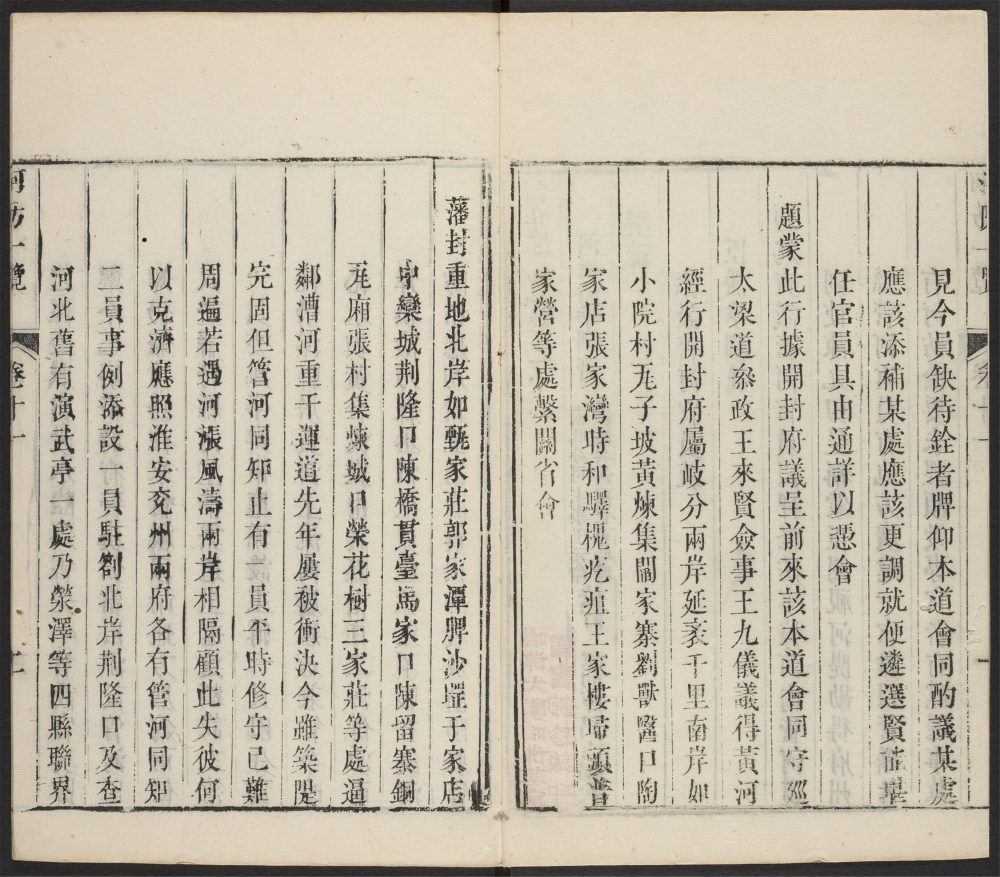 見今員缺待銓者牌仰本道會同酌議某處
應該添補某處應該更調就便遴選賢能堪
任官員具由通詳以憑會
題蒙此行據開封府議呈前來該本道會同守巡
太梁道叅政王來賢僉事王九儀議得黃河
經行開封府屬岐分兩岸延袤千里南岸如
小院村兎子坡黃煉集閻家寨劉獸醫口陶
家店張家灣時和驛槐疙疸王家樓埽頭普
家營等處繫關省會
藩封重地北岸如甄家莊郭家潭脾沙堽于家店
中欒城荆隆口陳橋貫臺馬家口陳留寨銅
瓦廂張村集煉城口榮花樹三家莊等處逼
鄰漕河重干運道先年屢被衝決今雖築隄
完固但管河同知止有一員平時修守已難
周遍若遇河漲風濤兩岸相隔顧此失彼何
以克濟應照淮安兗州兩府各有管河同知
二員事例添設一員駐劄北岸荆隆口及查
河北舊有演武亭一處乃滎澤等四縣聯界
河防一覽 卷十一